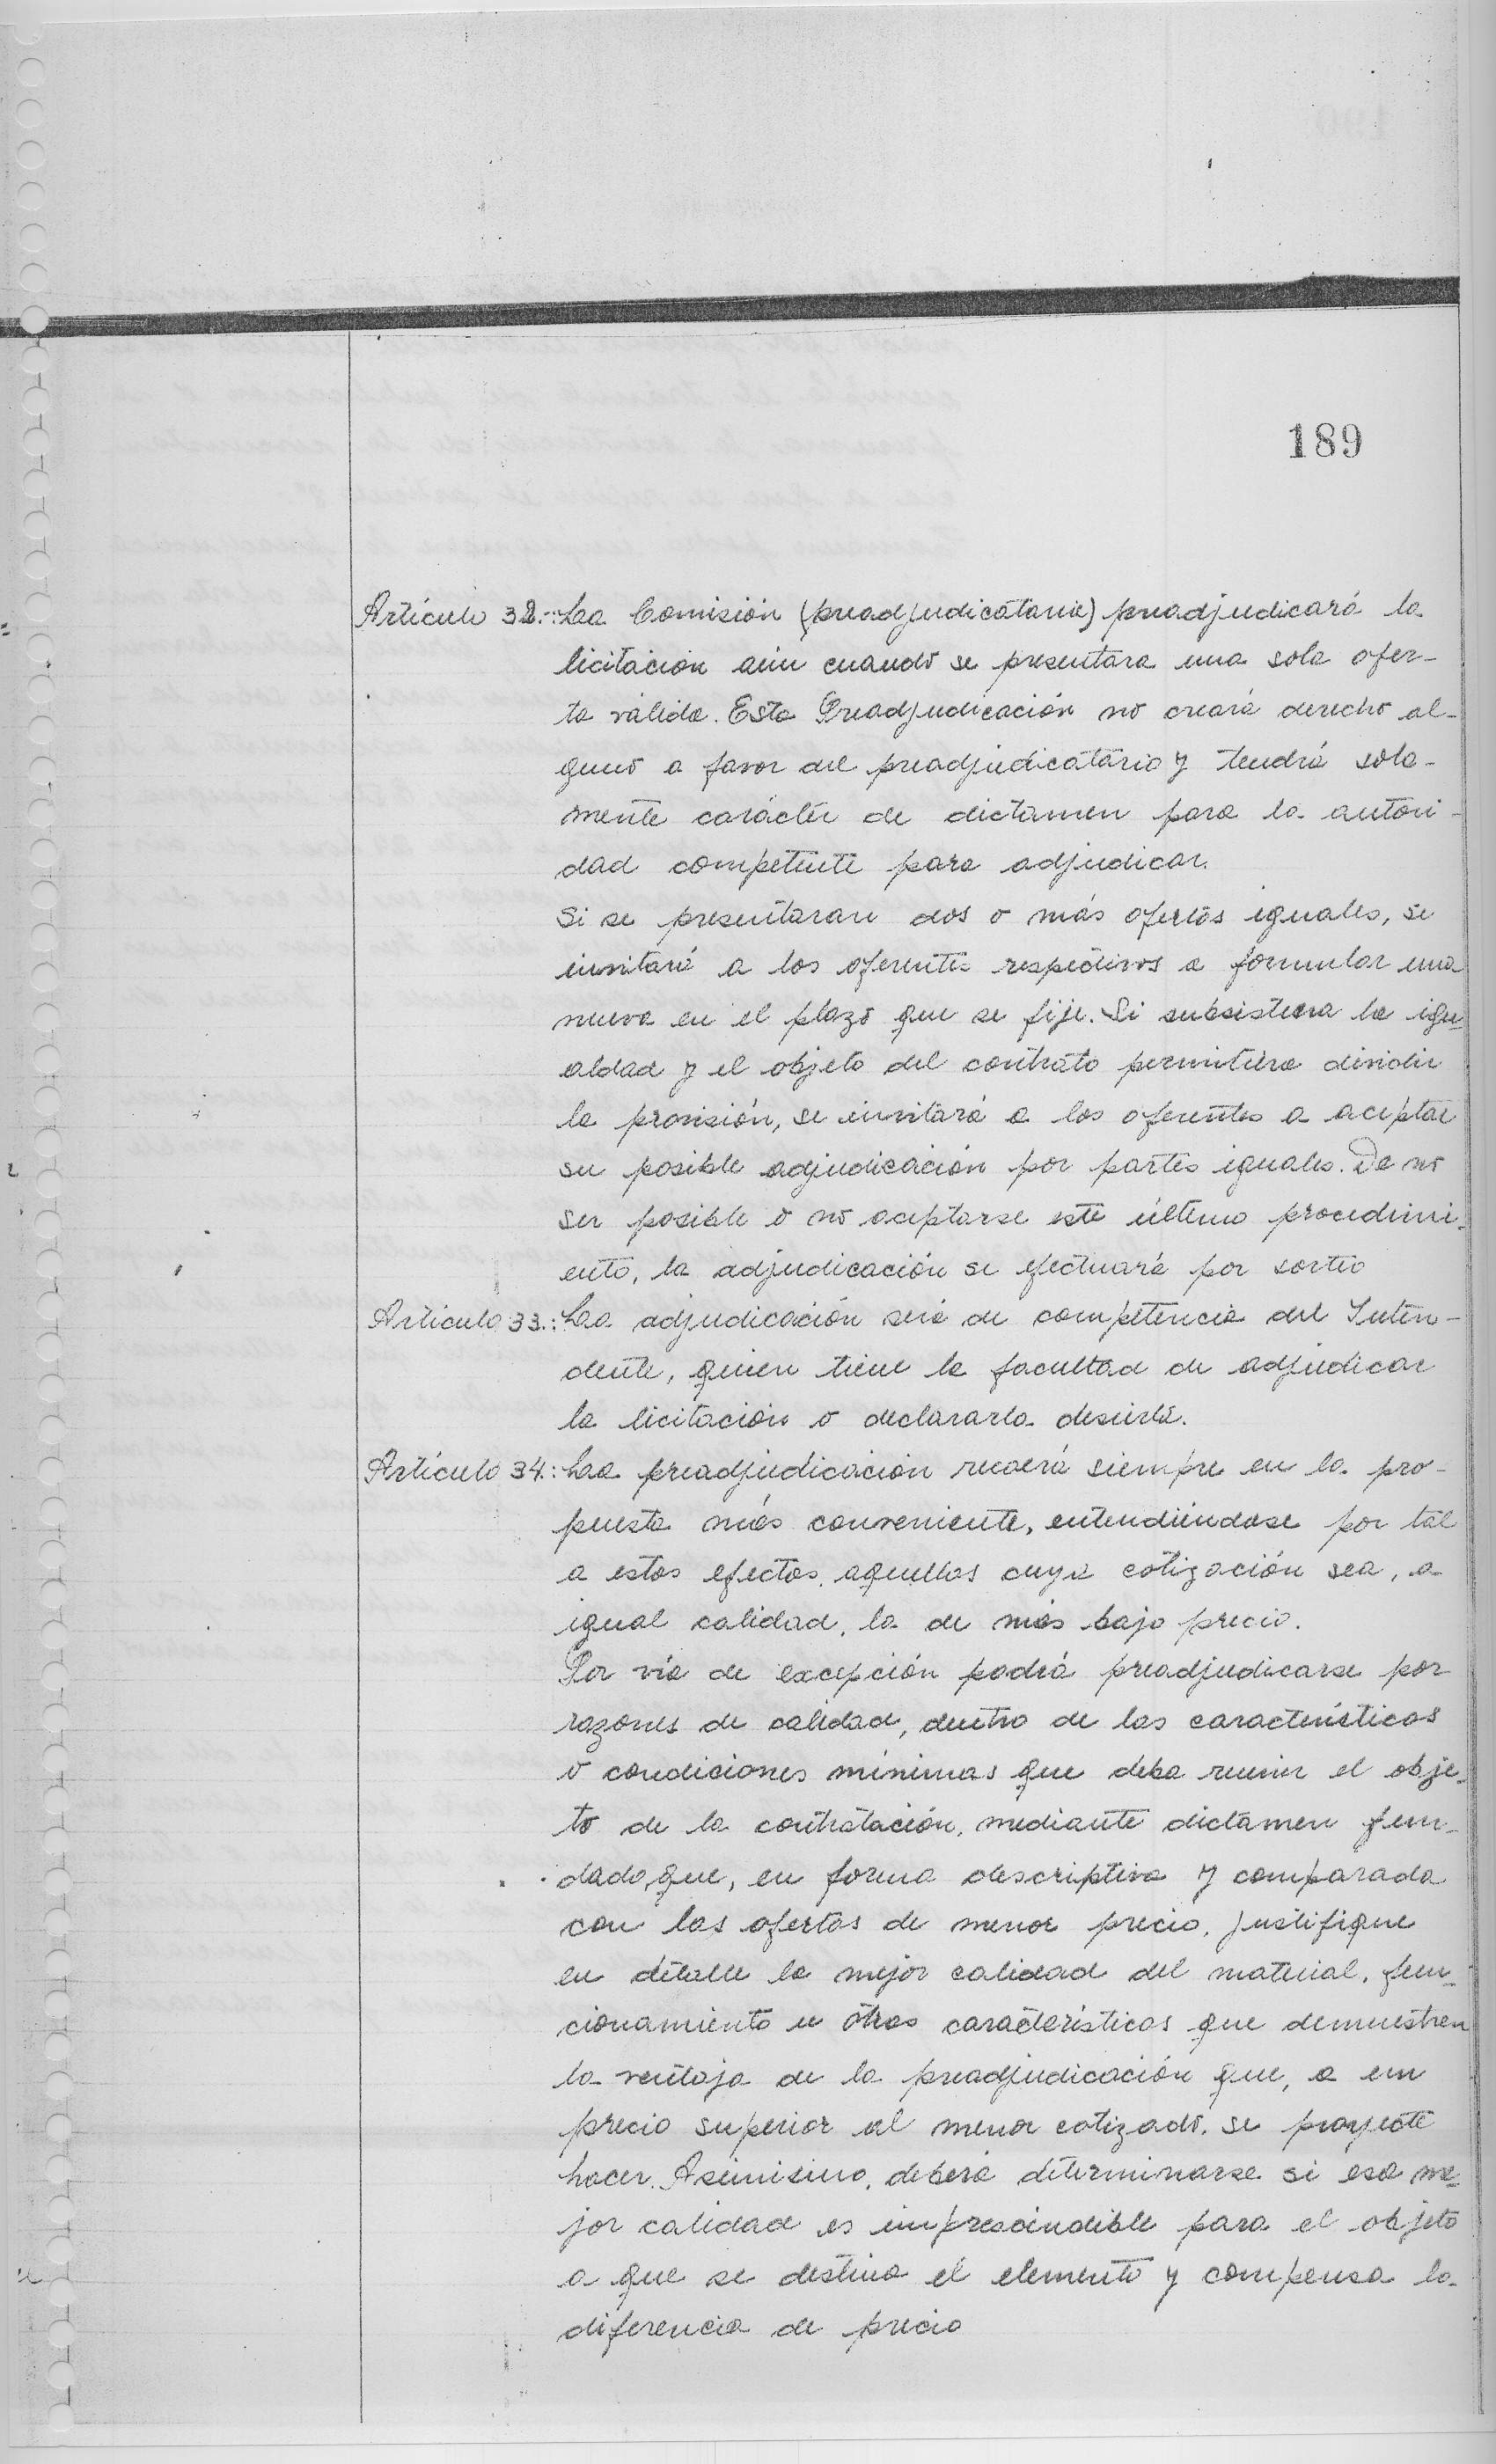 189
Artículo 32.: La Comisión (preadjudicataria) preadjudicará la
licitación aún cuando se presentara una sola ofer-
ta válida. Esta Preadjudicación no creará derecho al-
guno a favor del preadjudicatario y tendrá sola-
mente carácter de dictamen para la autori-
dad competente para adjudicar.
Si se presentaran dos o más ofertas iguales, se
invitará a los oferentes respectivos a formular una
nueva en el plazo que se fije. Si subsistiera la igu-
aldad y el objeto del contrato permitiera dividir
la provisión, se invitará a los oferentes a aceptar
su posible adjudicación por partes iguales. De no
ser posible o no aceptarse este último procedimi-
ento, la adjudicación se efectuará por sorteo
Artículo 33.: La adjudicación será de competencia del Inten-
dente, quien tiene la facultad de adjudicar
la licitación o declararla desierta.
Artículo 34.: La preadjudicación recaerá siempre en la pro-
puesta más conveniente, entendiéndose por tal
a estos efectos, aquellas cuya cotización sea, a
igual calidad, la de más bajo precio.
Por vía de excepción podrá preadjudicarse por
razones de calidad, dentro de las características
o condiciones mínimas que deba reunir el obje-
to de la contratación, mediante dictamen fun-
dado, que, en forma descriptiva y comparada
con las ofertas de menor precio, justifique
en detalle la mejor calidad del material, fun-
cionamiento u otras características que demuestren
la ventaja de la preadjudicación que, a un
precio superior al menor cotizado, se proyecte
hacer. Asimismo, deberá determinarse si esa me-
jor calidad es imprescindible para el objeto
a que se destina el elemento y compensa la
diferencia de precio